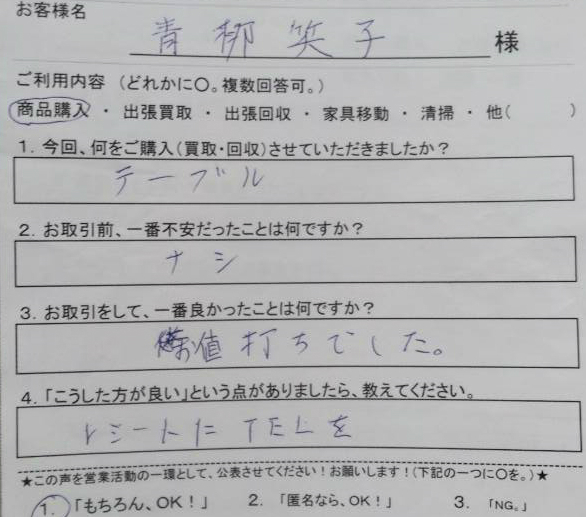 お客様名
青柳笑子 様
ご利用内容 (どれかに〇。複数回答可。)
商品購入 ・ 出張買取 ・ 出張回収 ・ 家具移動 ・ 清掃 ・ 他( )
1. 今回、何をご購入(買取・回収)させていただきましたか?
テーブル
2. お取引前、一番不安だったことは何ですか?
ナシ
3. お取引をして、一番良かったことは何ですか?
お値打ちでした。
4. 「こうした方が良い」という点がありましたら、教えてください。
レシートに TELを
★この声を営業活動の一環として、公表させてください!お願いします!(下記の一つに〇を。)★
1. 「もちろん、OK!」 2. 「匿名なら、OK!」 3. 「NG。」